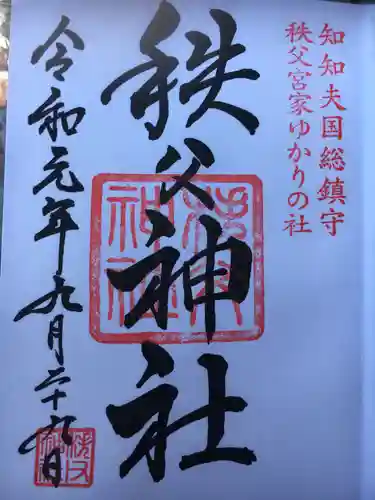 知知夫国総鎮守
秩父宮家ゆかりの社
秩父神社
令和元年九月二十九日
秩父神社